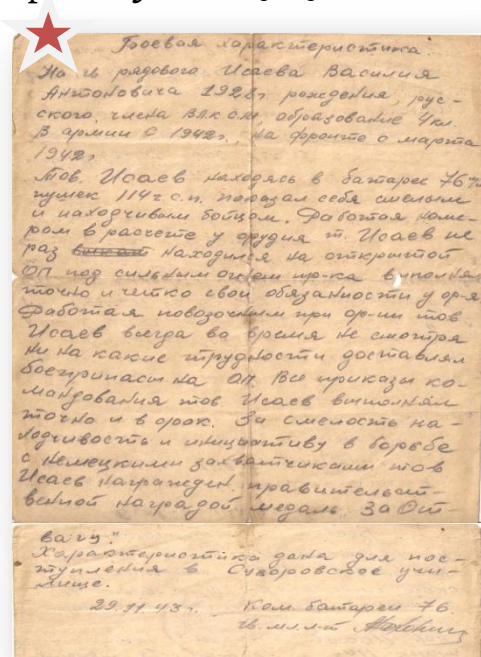 Боевая характеристика.
На гв рядового Исаева Василия
Антоновича 1928г рождения, рус-
ского, члена ВЛКСМ, образование 4кл.
В армии с 1942г, на фронте с марта
1942г
Тов. Исаев находясь в батарее 76 м/м
пушек 114 с.п. показал себя смелым
и находчивым бойцом. Работая номе-
ром в расчете у орудия т. Исаев не
раз находился на открытой
ОП под сильным огнем пр-ка выполнял
точно и четко свои обязанности у ор-я
Работая повозочным при ор-ии тов
Исаев всегда во время не смотря
ни на какие трудности доставлял
боеприпасы на ОП. Все приказы ко-
мандования тов Исаев выполнял
точно и в срок. За смелость на-
ходчивость и инициативу в борьбе
с немецкими захватчиками тов
Исаев награжден правительст-
венной наградой медаль За От-
вагу."
Характеристика дана для пос-
тупления в Суворовское учи-
лище.
29.11 43г. Ком. батареи 76.
гв. мл. л-т